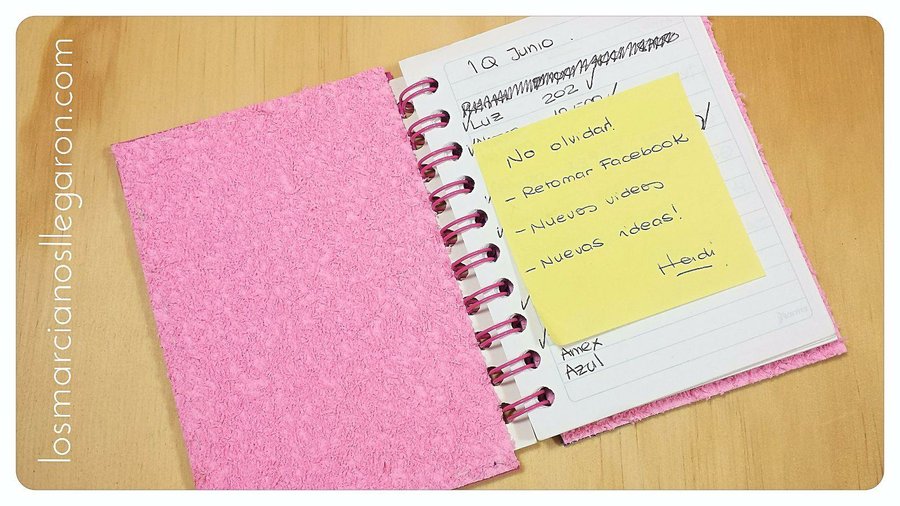 losmarcianosllegaron.com
1Q Junio.
Luz 202
No olvidar!
- Retomar Facebook
- Nuevos videos
- Nuevas ideas!
Heidi
Amex
Azul
Norma